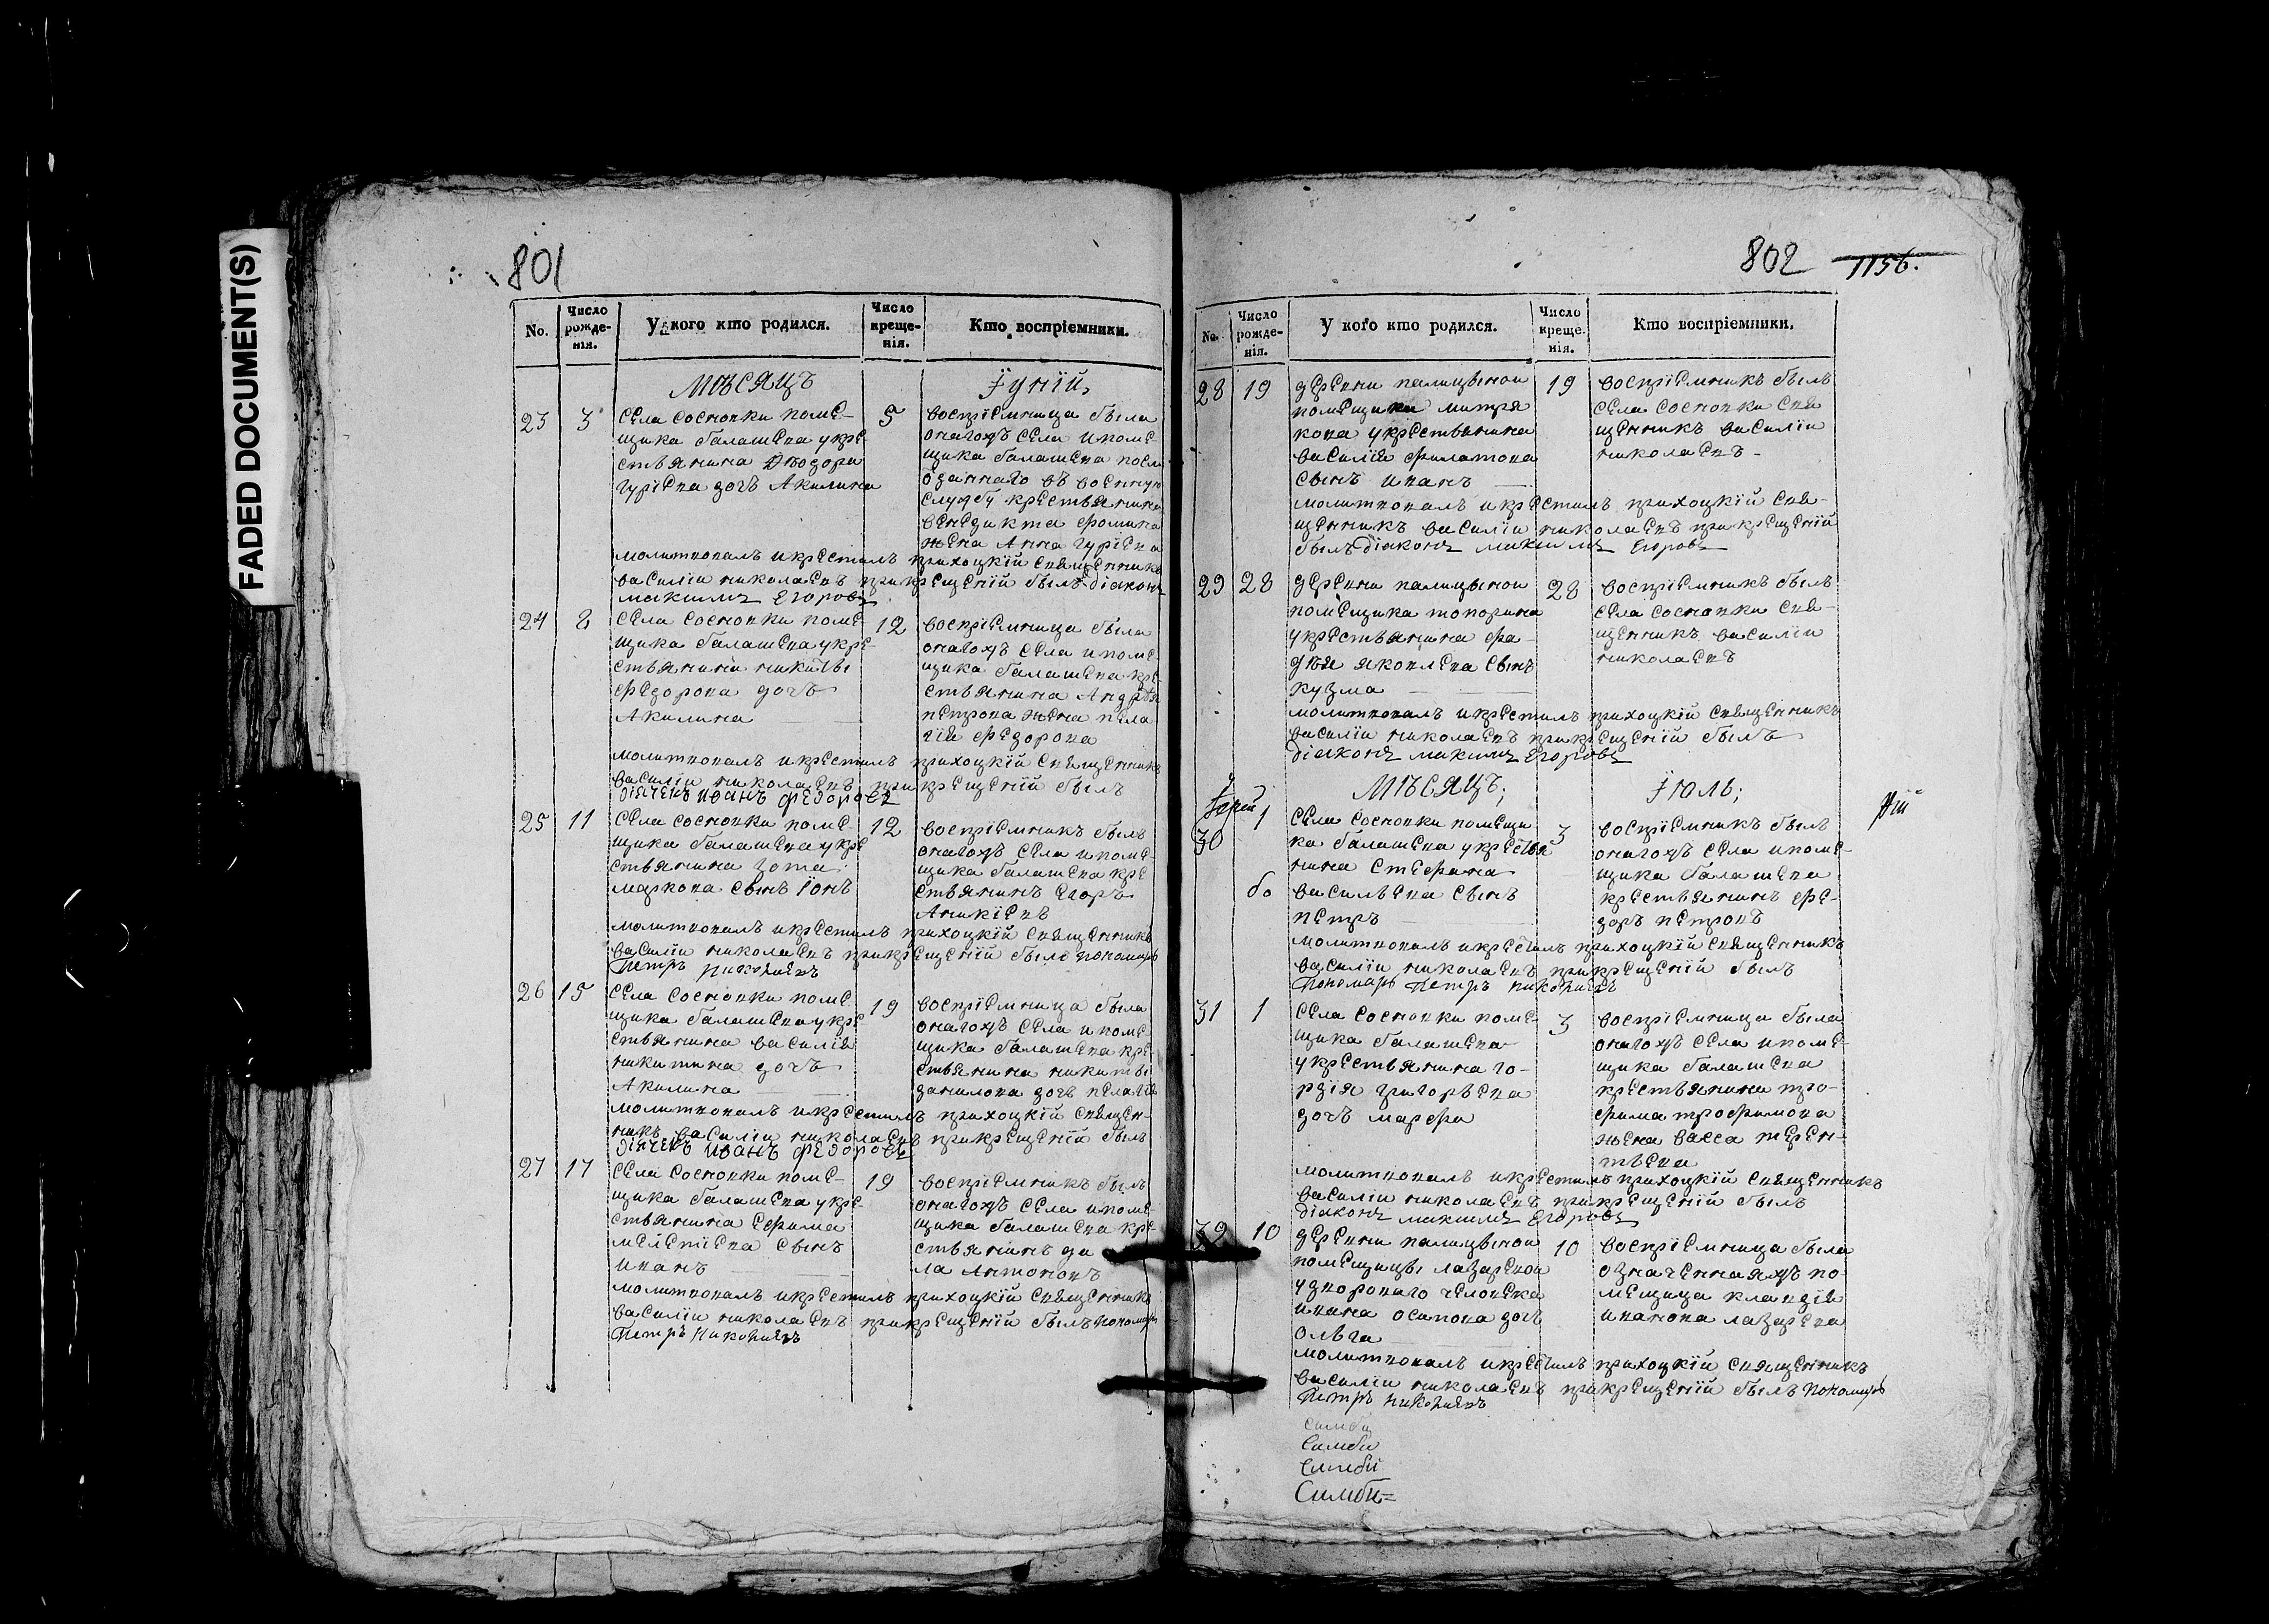 FADED DOCUMENT(S)
801
No.
Число рожде-нія.
У кого кто родился.
Число креще-нія.
Кто воспріемники.
мѣсяцъ
Їуній,
23
3
села сосновки поме-
щика балашева укре-
стьянина Ѳѣодора
гуріева дочъ Акилина
5
воспріемница была
оногожъ села ипоме-
щика балашева посл
оданнаго въ воѣнную
службу крестьянина
венедикта фомина
жена Анна гуріева
молитвовалъ икрестилъ прихоцкій священникъ
василіи николаевъ прикрещеніи былъ діаконъ
максимъ Егоровъ
24
8
села сосновки поме-
щика балашева укре-
стьянина никиты
федорова дочъ
Акилина
12
воспріемница была
оногожъ села ипоме-
щика балашева кре-
стьянина Андрѣя
петрова жена пела
гія федорова
молитвовалъ икрестилъ прихоцкій священникъ
василіи николаевъ прикрещеніи былъ
діячекъ иванъ федоровъ
25
11
села сосновки поме-
щика балашева укре
стьянина зота
маркова сынъ їонъ
12
воспріемникъ былъ
оногожъ села ипоме-
щика балашева кре
стьянинъ Егоръ
Аникіевъ
молитвовалъ икрестилъ прихоцкій священникъ
василіи николаевъ прикрещеніи былъ пономарь
Петръ
26
15
села сосновки поме-
щика балашева укре
стьянина василія
никитина дочъ
Акилина
19
воспріемница была
оногожъ села ипоме-
щика балашева кре-
стьянина никиты
данилова дочь пелагія
молитвовалъ икрестилъ прихоцкій священ-
никъ василіи николаевъ прикрещеніи былъ
діячекъ иванъ федоровъ
27
17
села сосновки поме-
щика балашева укре-
стьянина Ефима
мелетіева сынъ
иванъ
19
воспріемникъ былъ
оногожъ села ипоме-
щика балашева кре-
стьянинъ да
ла Антоновъ
молитвовалъ икрестилъ прихоцкій священникъ
василіи николаевъ прикрещеніи былъ пономарь
Петръ
802
1156.
No.
Число рожде-нія.
У кого кто родился.
Число креще-нія.
Кто воспріемники.
28
19
деревни палицыной
помещика митря
кова укрестьянина
василія филатова
сынъ иванъ
19
воспріемникъ былъ
села сосновки свя
щенникъ василіи
николаевъ
молитвовалъ икрестилъ прихоцкій свя-
щенникъ василіи николаевъ прикрещеніи
былъ діаконъ максимъ Егоровъ
29
28
деревни палицыной
помещика топорина
укрестьянина фа-
дѣя яковлева сынъ
кузма
28
воспріемникъ былъ
села сосновки свя-
щенникъ василіи
николаевъ
молитвовалъ икрестилъ прихоцкій священникъ
василіи николаевъ прикрещеніи былъ
діаконъ максимъ Егоровъ
мѣсяцъ;
Їюль;
30
1
села сосновки помещи
ка балашева укрестья
нина стефана
василъева сынъ
петръ
3
воспріемникъ былъ
оногожъ села ипоме-
щика балашева
крестьянинъ фе-
доръ петровъ
молитвовалъ икрестилъ прихоцкій священникъ
василіи николаевъ прикрещеніи былъ
Пономарь Петръ
31
1
села сосновки поме-
щика балашева
укрестьянина го-
рдія григоръева
дочъ марфа
3
воспріемница была
оногожъ села ипоме-
щика балашева
крестьянина тро-
фима трофимова
жена васса терен-
тьева
молитвовалъ икрестилъ прихоцкій священникъ
василіи николаевъ прикрещеніи былъ
діаконъ максимъ Егоровъ
32
10
деревни палицыной
помещицы лазаревой
удвороваго человека
ивана осипова дочь
олъга
10
воспріемница была
означеннаяжъ по-
мещица клавдія
иванова лазарева
молитвовалъ икрестилъ прихоцкій священникъ
василіи николаевъ прикрещеніи былъ пономарь
Петръ
симби
Симби
Симби
Симби=